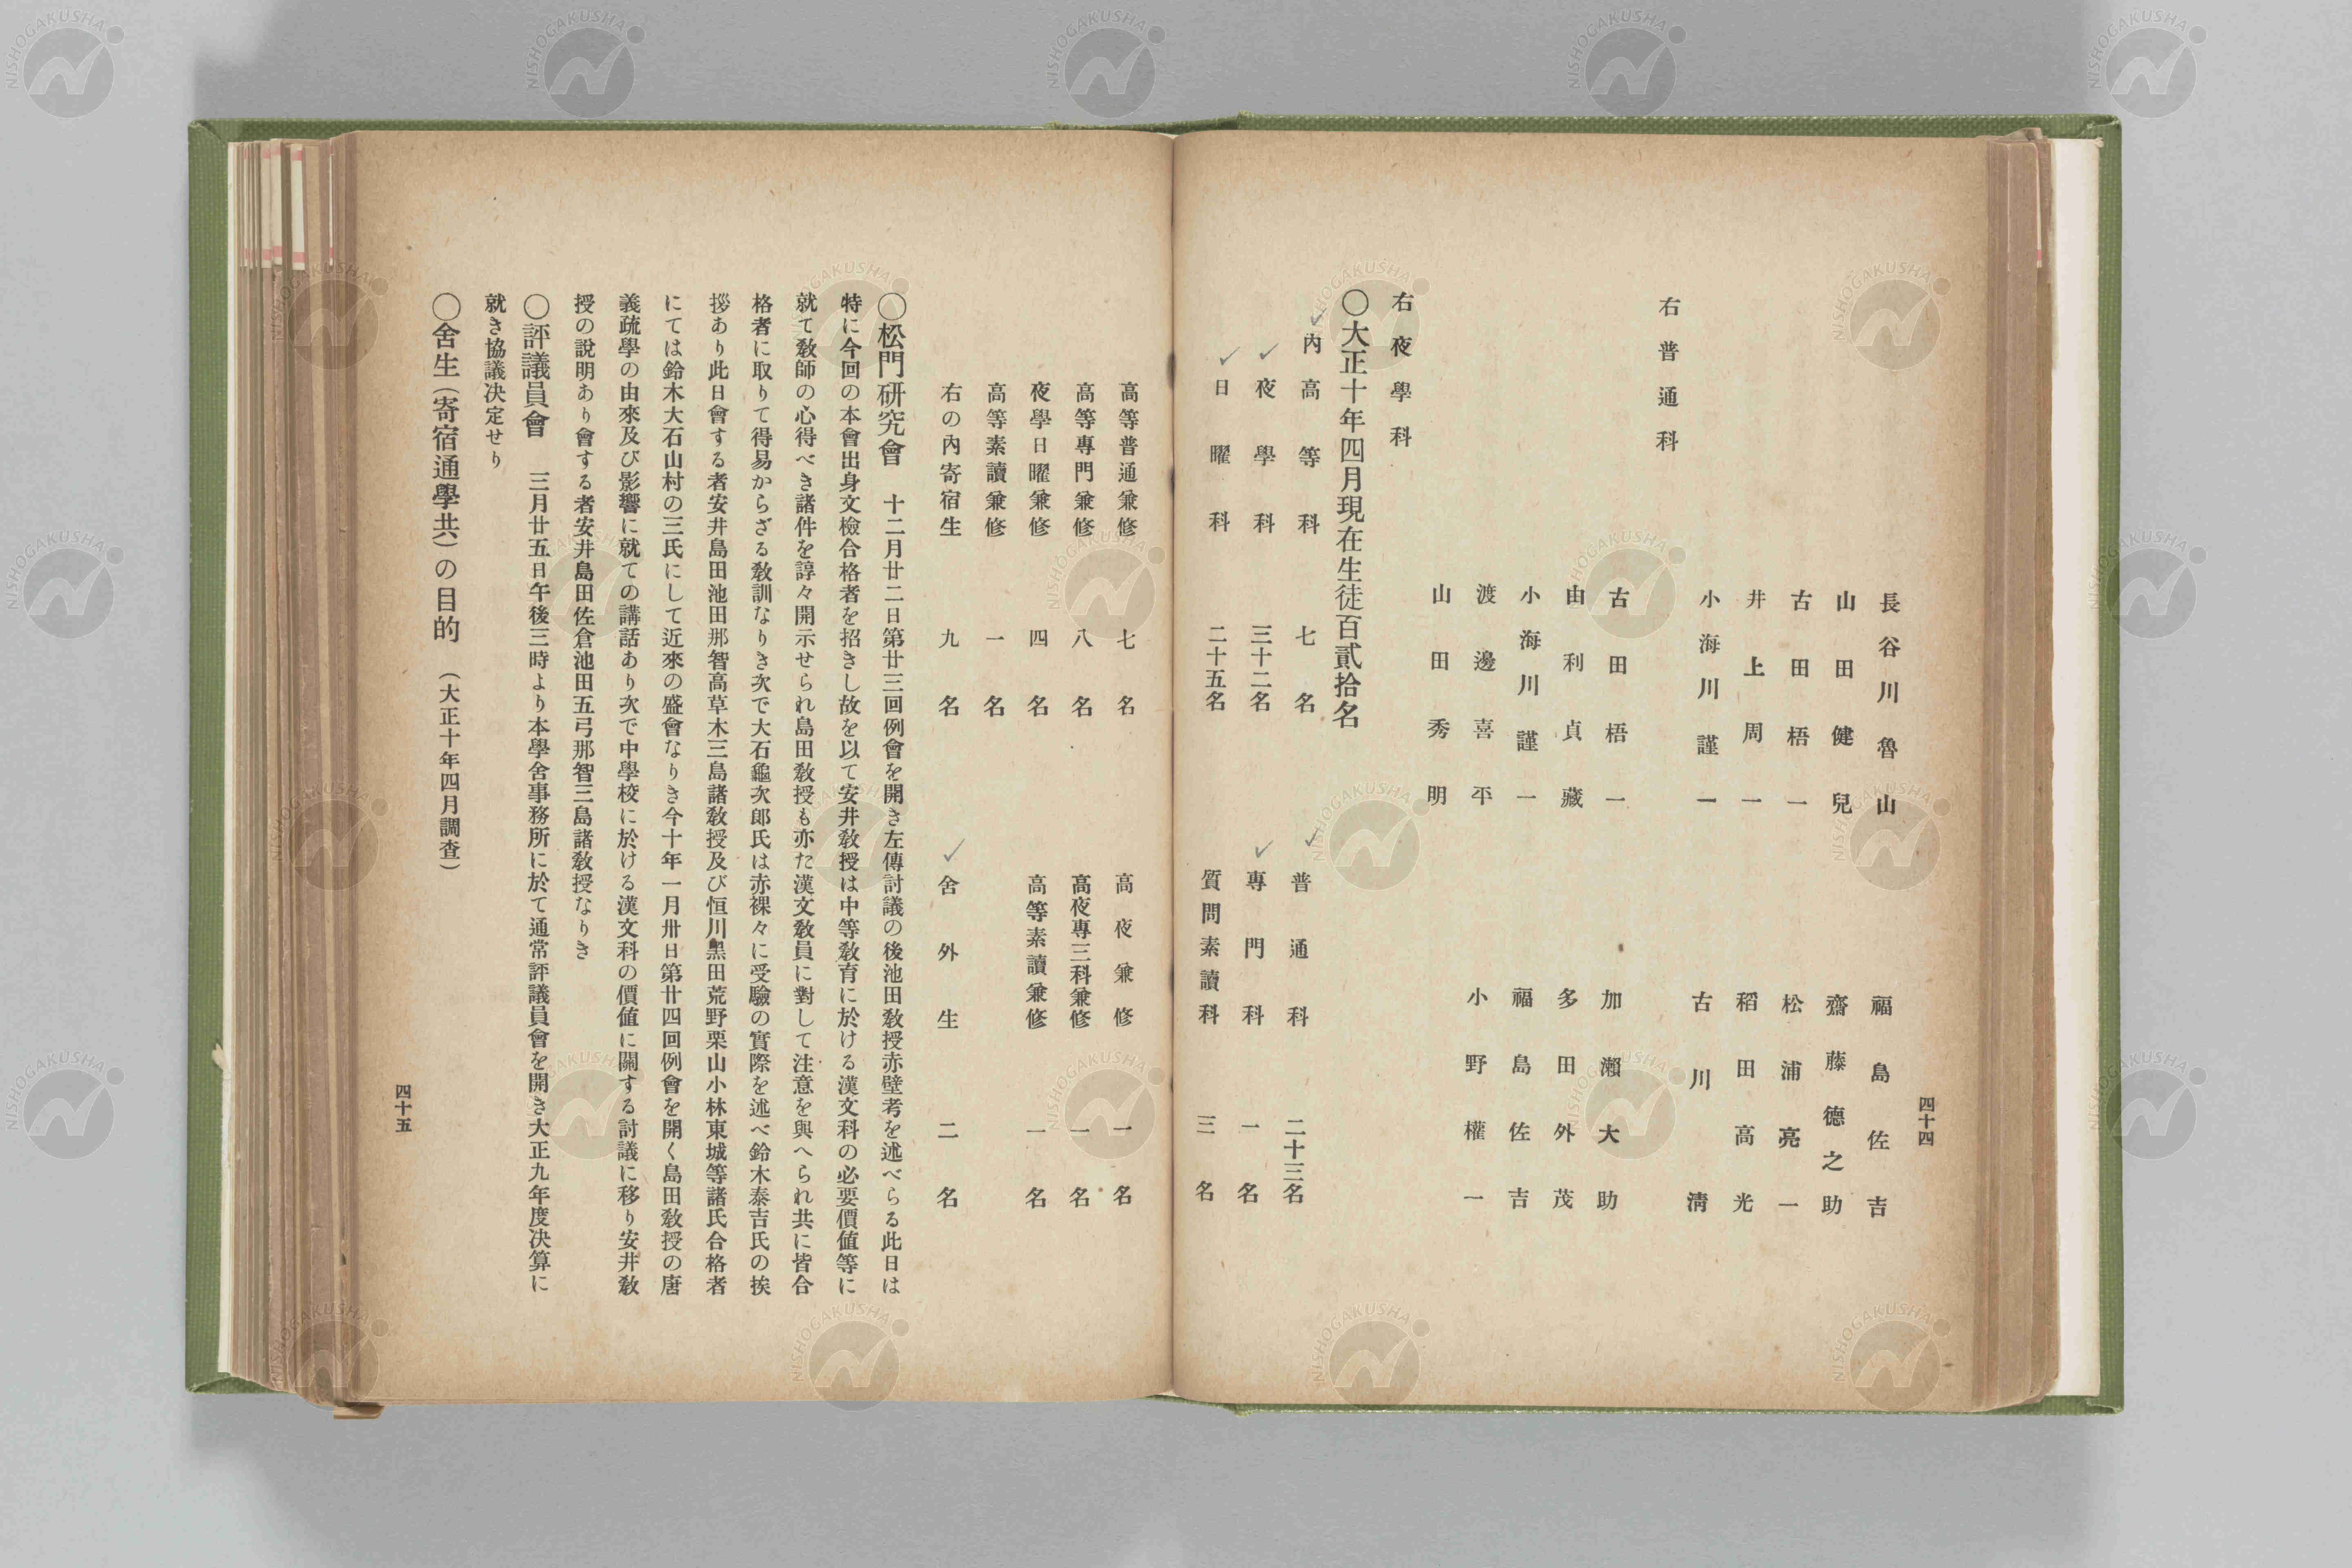 四十四
長谷川魯山　福島佐吉
山田健兒　齋藤德之助
古田梧一　松浦亮一
井上周一　稻田高光
小海川謹一　古川淸
右普通科
古田梧一　加瀨大助
由利貞藏　多田外茂
小海川謹一　福島佐吉
渡邊喜平　小野權一
山田秀明
右夜學科
〇大正十年四月現在生徒百貳拾名
內高等科　七名　普通科　二十三名
夜學科　三十二名　專門科　一名
日曜科　二十五名　質問素讀科　三名
高等普通兼修　七名　高夜兼修　一名
高等專門兼修　八名　高夜專三科兼修　一名
夜學日曜兼修　四名　高等素讀兼修　一名
高等素讀兼修　一名
右の內寄宿生　九名　舍外生　二名
〇松門研究會　十二月廿二日第廿三回例會を開き左傳討議の後池田敎授赤壁考を述べらる此日は
特に今回の本會出身文檢合格者を招きし故を以て安井敎授は中等敎育に於ける漢文科の必要價値等に
就て敎師の心得べき諸件を諄々開示せられ島田敎授も亦た漢文敎員に對して注意を與へられ共に皆合
格者に取りて得易からざる敎訓なりき次で大石龜次郎氏は赤裸々に受驗の實際を述べ鈴木泰吉氏の挨
拶あり此日會する者安井島田池田那智高草木三島諸敎授及び恒川黑田荒野栗山小林東城等諸氏合格者
にては鈴木大石山村の三氏にして近來の盛會なりき今十年一月卅日第廿四回例會を開く島田敎授の唐
義疏學の由來及び影響に就ての講話あり次で中學校に於ける漢文科の價値に關する討議に移り安井敎
授の說明あり會する者安井島田佐倉池田五弓那智三島諸敎授なりき
〇評議員會　三月廿五日午後三時より本學舍事務所に於て通常評議員會を開き大正九年度決算に
就き協議決定せり
〇舍生（寄宿通學共）の目的　（大正十年四月調査）
四十五